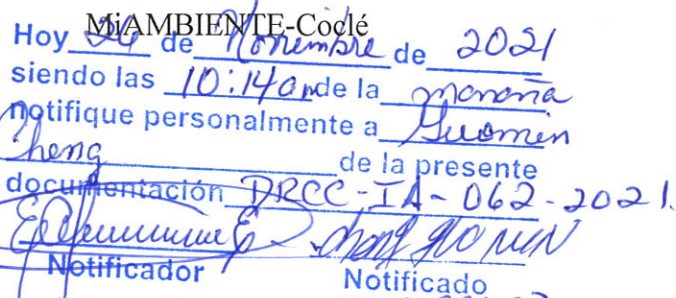 MiAMBIENTE-Coclé
Hoy 24 de Noviembre de 2021
siendo las 10:14am de la mañana
notifique personalmente a Guomin
Cheng de la presente
documentación DRCC-IA-062-2021.
Notificador Notificado